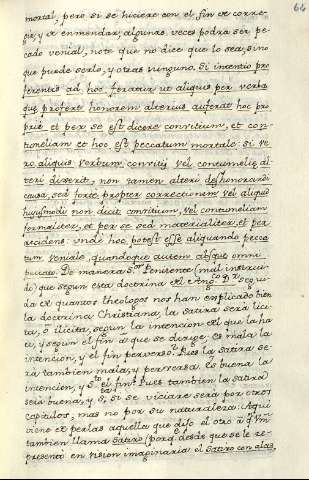 64
mortal, pero si se hiciere con el fin de corre-
gir, y de enmendar, algunas veces podra ser pe-
cado venial, note que no dice que lo sea, sino
que puede serlo, y otras ninguno. Si intentio pro
ferentis ad hoc feratur ut aliquis per verba
quæ profert honorem alterius auferat hoc pro-
priè et per se est dicere convitium, et con-
tumeliam et hoc est peccatum mortale. Si ve-
ro aliquis verbum convitij vel contumeliæ al-
teri dixerit, non tamen alteri deshonorandi
causa, sed forte propter correctionem vel aliquid
huiusmodi non dicit convitium, vel contumeliam
formaliter, et per se sed materialiter, et per
accidens. unde hoc potest esse aliquando pecca-
tum veniale, quandoque autem absque omni
peccato. De manera Sor Penitente (mal instrui-
do) que segun esta doctrina del Angco Dr segui-
da de quantos theologos nos han explicado bien
la doctrina Christiana, la satira será lici-
ta, ò ilicita, segun la intencion del que la ha-
ce, y segun el fin à que se dirige, es mala la
intencion, y el fin perverso? Pues la satira se-
rá tambien mala, y perversa. Es buena la
intencion, y el fin? Pues tambien la satira
será buena, y si se viciare será por otros
capitulos, mas no por su naturaleza. Aqui
viene de perlas aquello que dijo el otro à qn
tambien llama satiro (porq desde que se le re-
presentò en vision imaginaria el Satiro con alas,